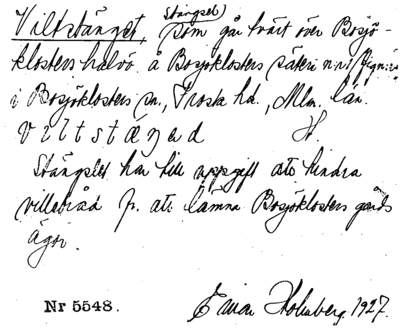 Stängsel)
Viltstänget, som går tvärt över Bosjö-
klosters halvö å Bosjöklosters säteri n:r 1
i Bosjöklosters sn, Frosta hd, Mlm. län.
viltstæŋəd H.
Stängslet har till uppgift att hindra
villebråd fr. att lämna Bosjöklosters gårds
ägor.
Nr 5548. Einar Holmberg. 1927.